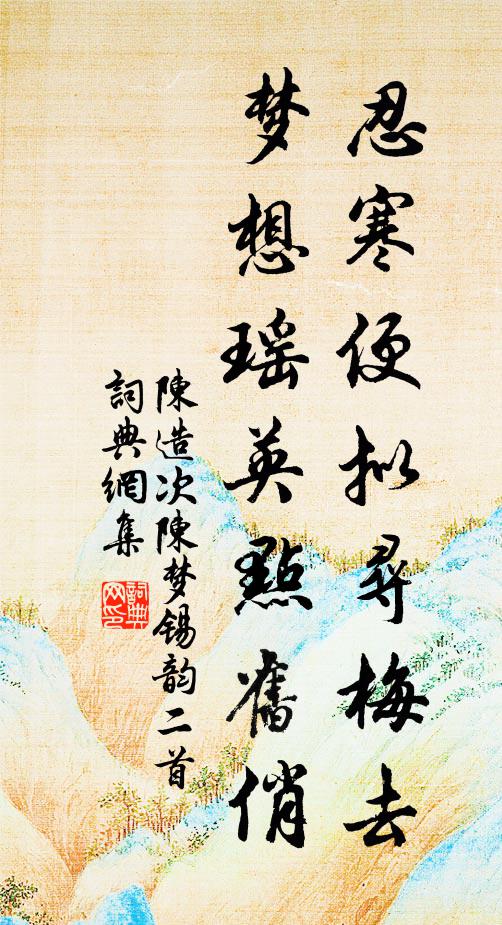 忍寒便拟尋梅去
梦想瑶英點舊俏
陳造次陳梦锡韵二首
詞典網集
詞典
网印